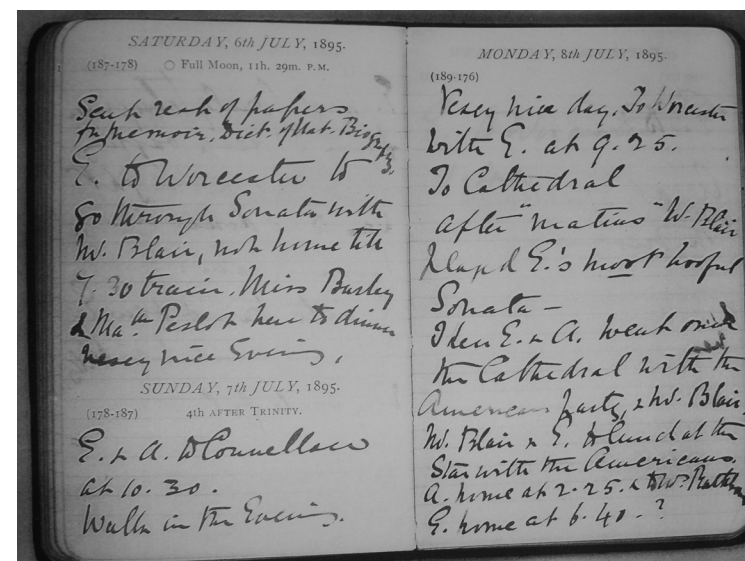 SATURDAY, 6th JULY, 1895.
(187-178) ○ Full Moon, 11h. 29m. P.M.
Sent rest of papers
for memoir. Dict. of Nat. Biogrphy.
E. to Worcester to
go through Sonata with
Mr. Blair, not home till
7.30 train. Miss Burley
& Ma^m Peslot here to dinner
vesey nice Evening.
SUNDAY, 7th JULY, 1895.
(178-187) 4th AFTER TRINITY.
E. & A. to Connellan
at 10.30.
Walk in the Evening.
MONDAY, 8th JULY, 1895.
(189-176)
Vesey nice day. To Worcester
with E. at 9.25.
To Cathedral
after "matins" Mr. Blair
played E.'s most booful
Sonata —
Then E. & A. went over
the Cathedral with the
American party, & Mr. Blair
Mr. Blair & E. to lunch at the
Star with the Americans.
A. home at 2.25. & to W.
E. home at 6.40 - ?